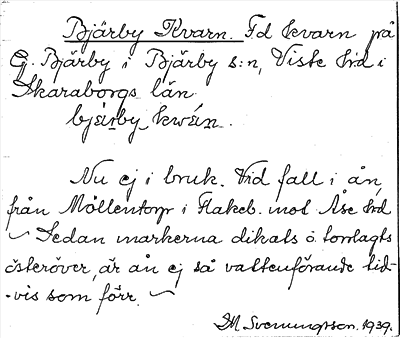 Bjärby Kvarn. Fd kvarn på
G. Bjärby i Bjärby s:n, Viste hrd i
Skaraborgs län
bjä̀rby kwá̀n.
Nu ej i bruk. Vid fall i ån,
från Möllentorp i Flakeb. mot Åse hrd
~ Sedan markerna dikats o. torrlagts
österöver, är ån ej så vattenförande tid-
-vis som förr. ~
DM Svenungsson. 1939.